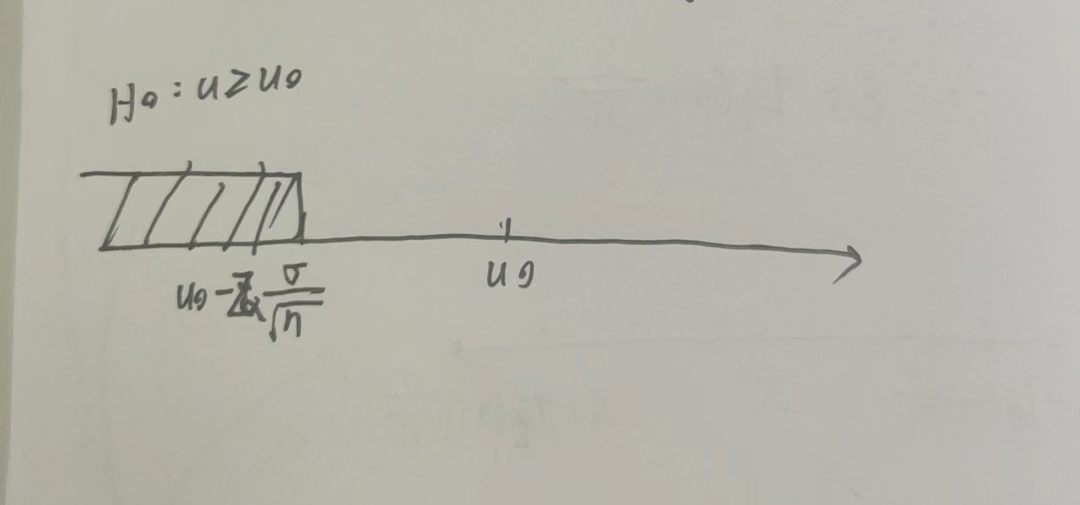 H0:u≥u0
u0-Zα σ/√n
u0